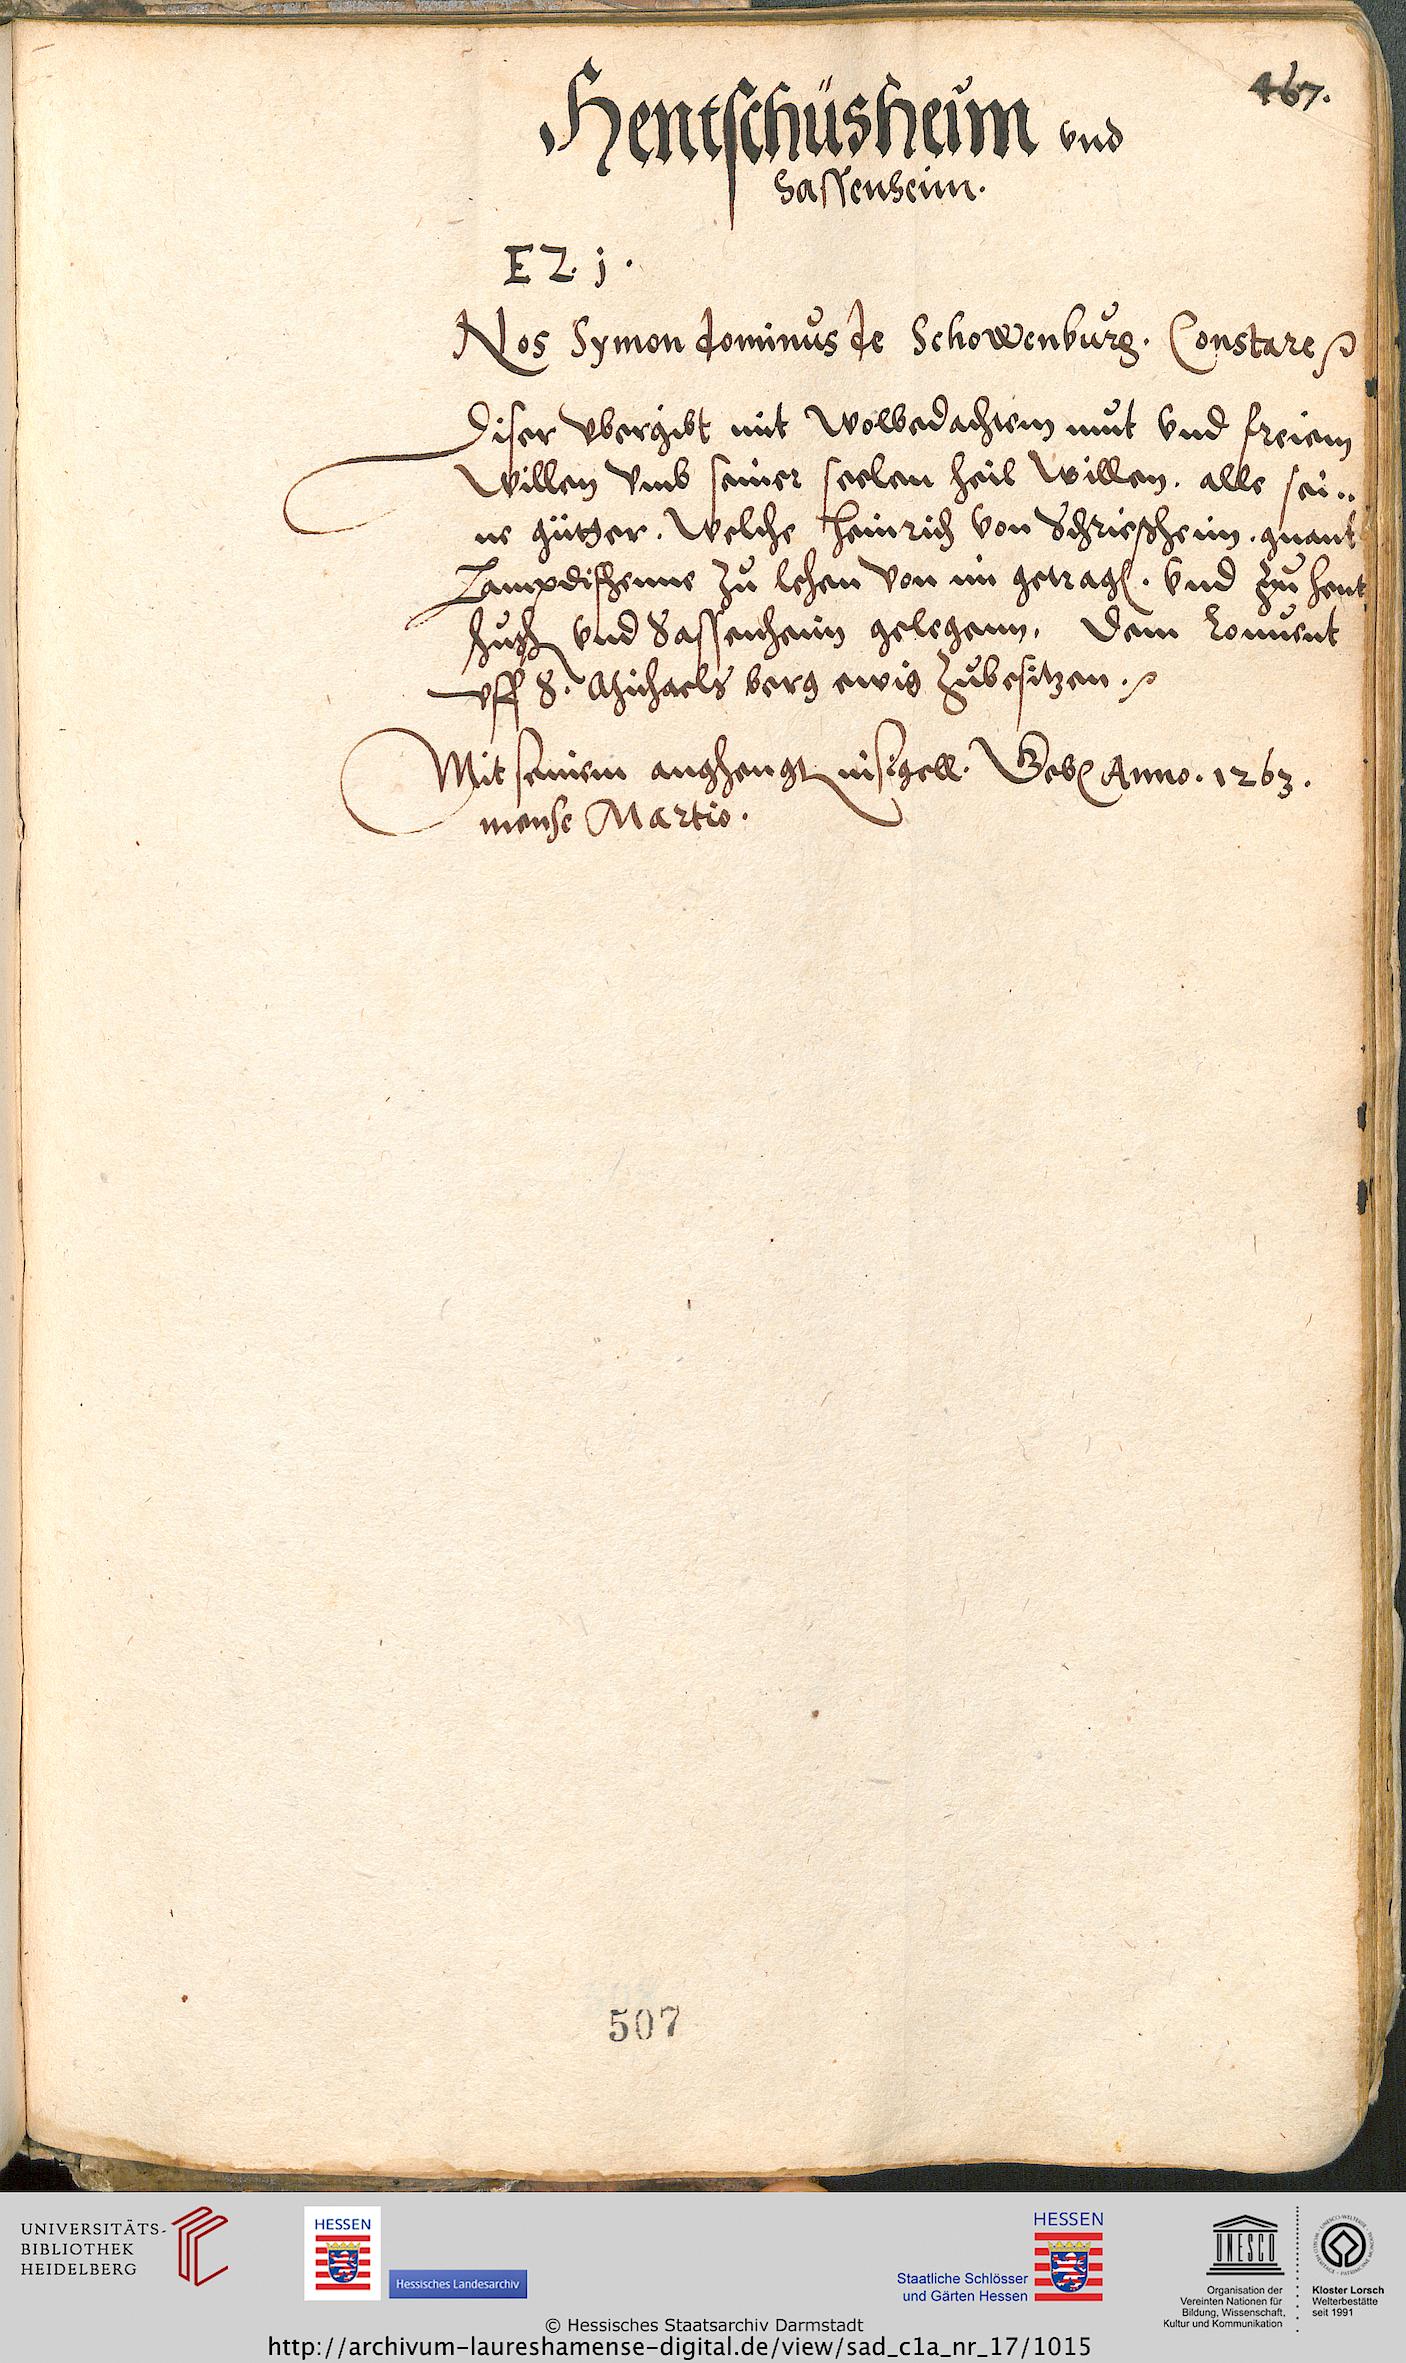 467.
Hentschüsheim vnd
Sassenheim.
EZ. j.
Nos Symon dominus de Schowenburg. Constare
Diser vbergibt mit wolbedachtem mut vnd freiem
willen vmb seiner seelen heil willen. alle sei..
ne gütger. welche Heinrich von Schrießheim. gnant
Lampdisheune zu lehen von im getrag. vnd zu hent
husß vnd Sassenheim gelegenn, dem Conuent
vff S. Michaels berg ewig zubesitzen.
Mit seinem anghengt insigell. Geb Anno. 1263.
mense Martio.
507
UNIVERSITÄTS-
BIBLIOTHEK
HEIDELBERG
HESSEN
Hessisches Landesarchiv
HESSEN
Staatliche Schlösser
und Gärten Hessen
UNESCO
Organisation der
Vereinten Nationen für
Bildung, Wissenschaft,
Kultur und Kommunikation
Kloster Lorsch
Welterbestätte
seit 1991
© Hessisches Staatsarchiv Darmstadt
http://archivum-laureshamense-digital.de/view/sad_c1a_nr_17/1015